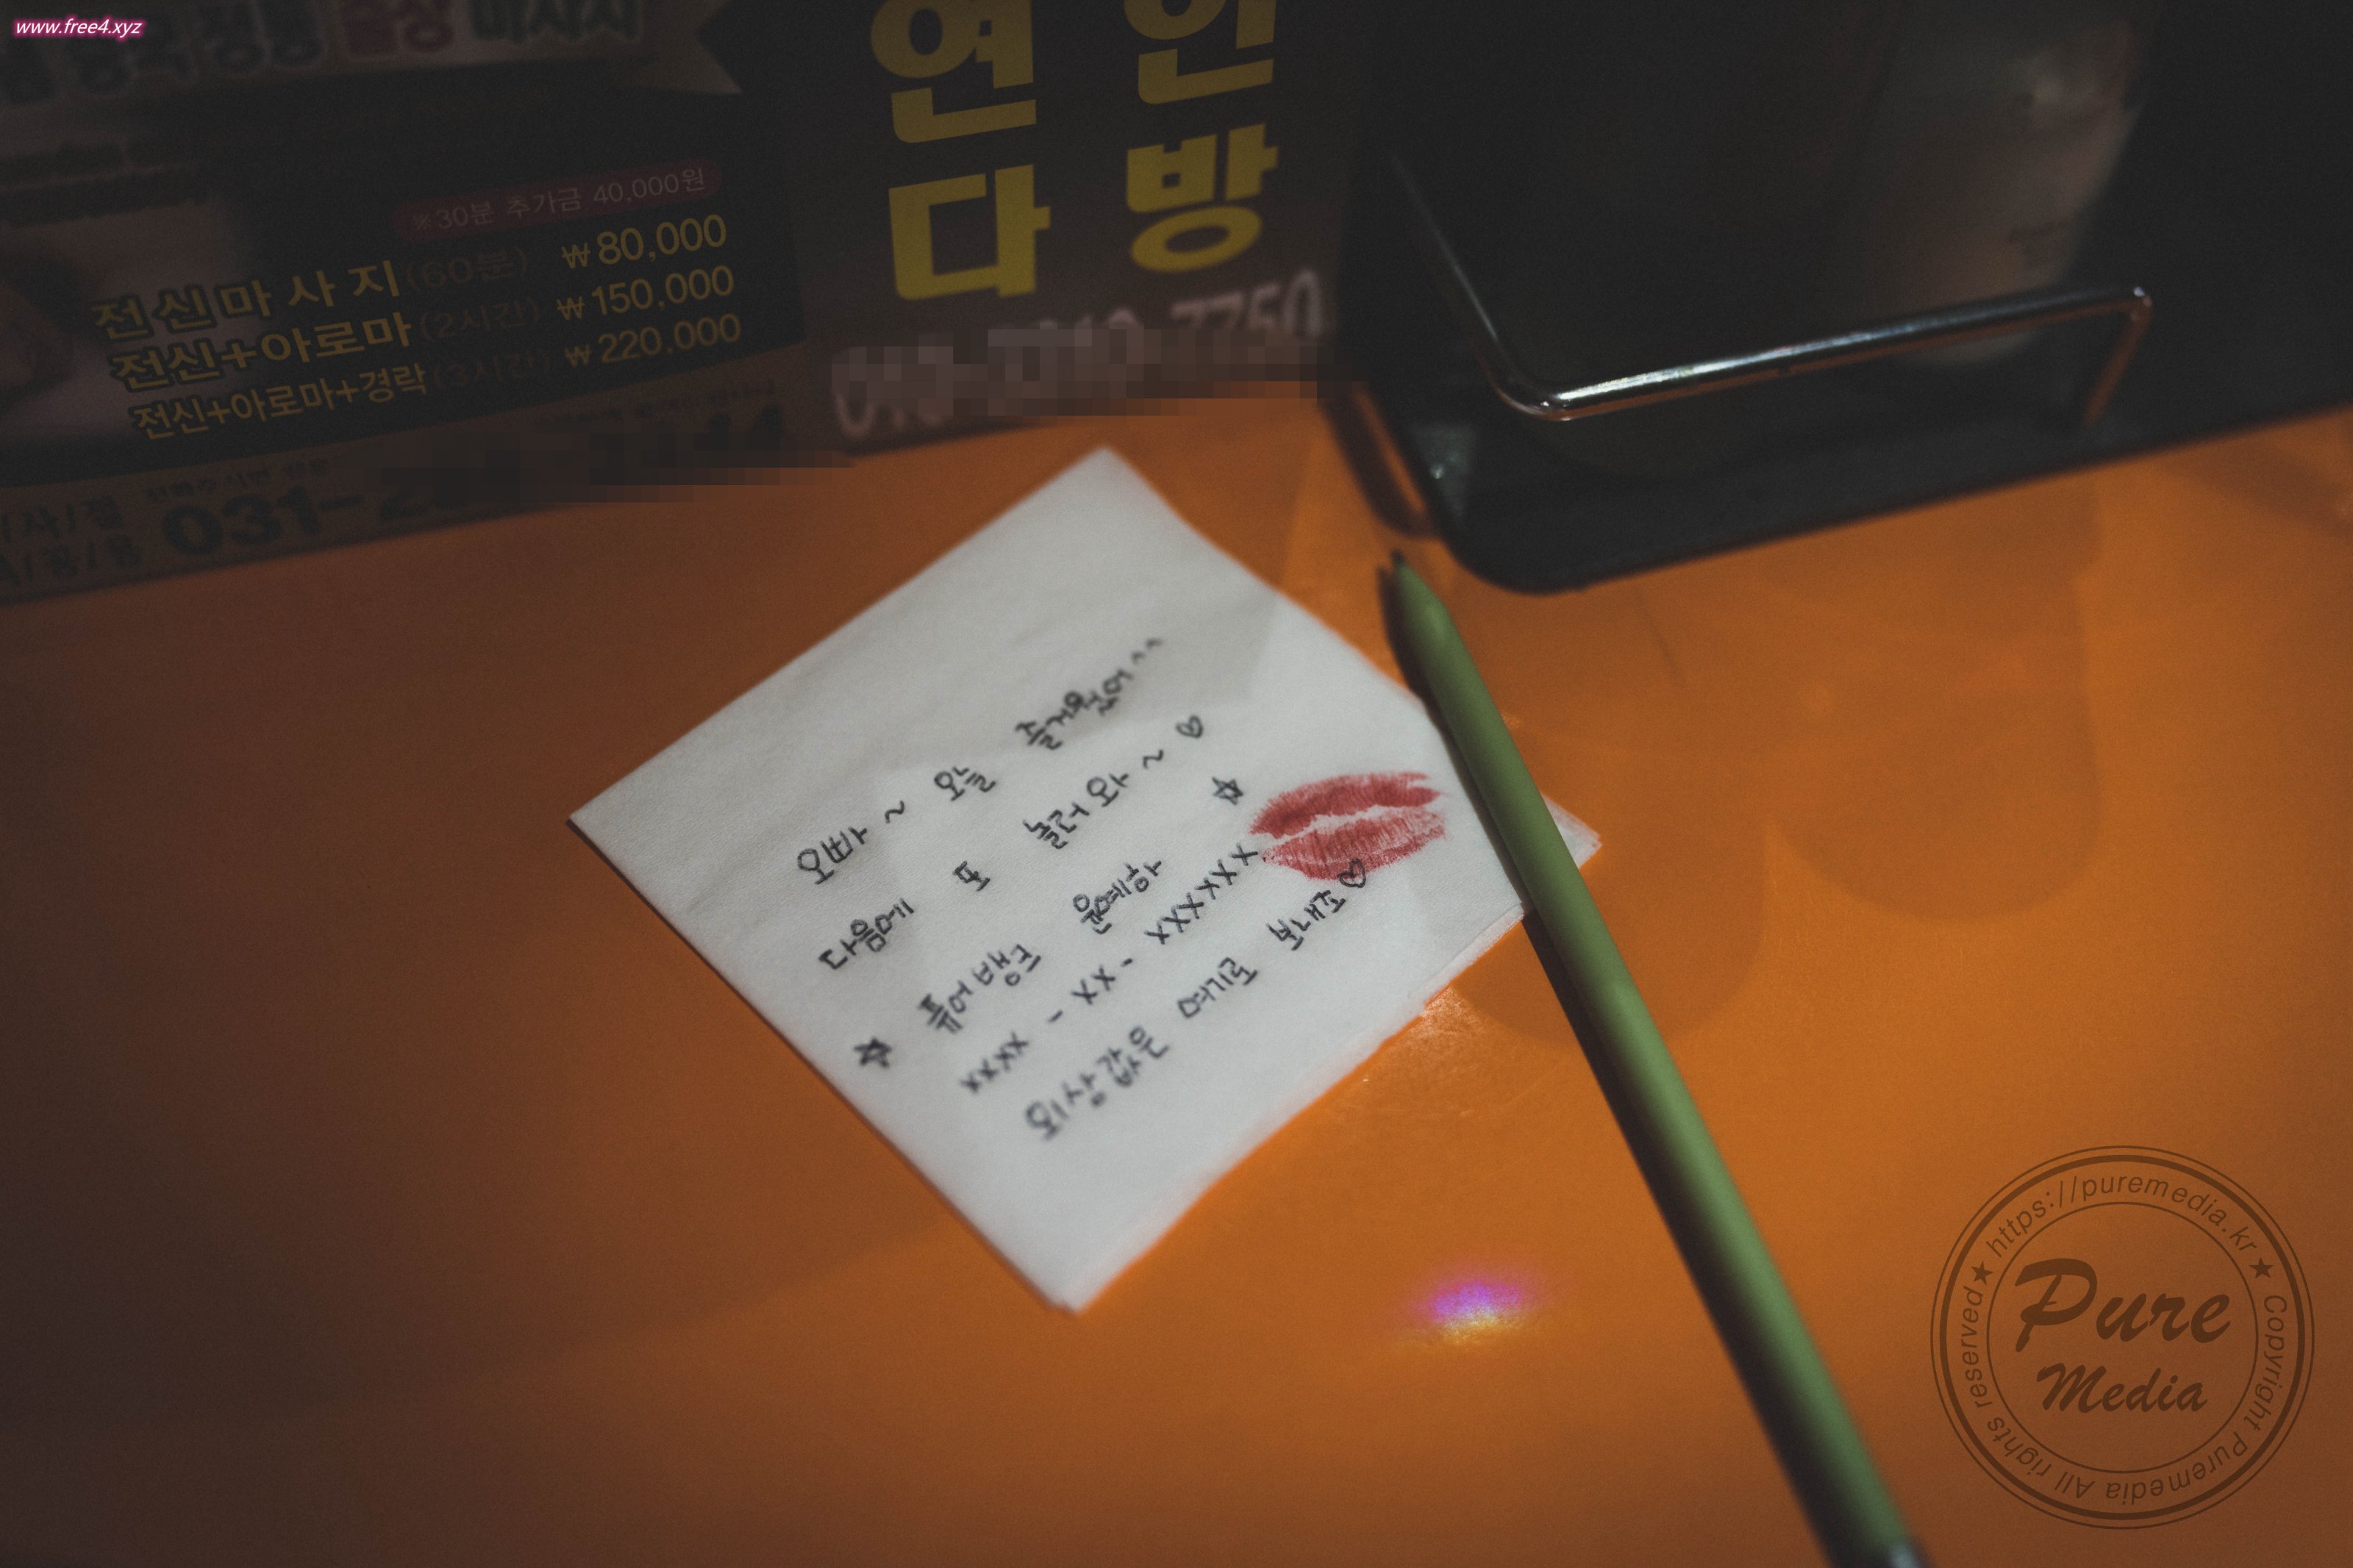 www.free4.xyz
출장 마사지
※30분 추가금 40,000원
전신마사지(60분) ₩80,000
전신+아로마(2시간) ₩150,000
전신+아로마+경락(3시간) ₩220,000
031-2
연인
다방
오빠~ 오늘 즐거웠어^^
다음에 또 놀러와~♡
☆ 퓨어뱅크 윤예하 ☆
xxxx-xx-xxxxxx
외상값은 여기로 보내죠♡
Pure
Media
https://puremedia.kr ★ Copyright Puremedia All rights reserved ★